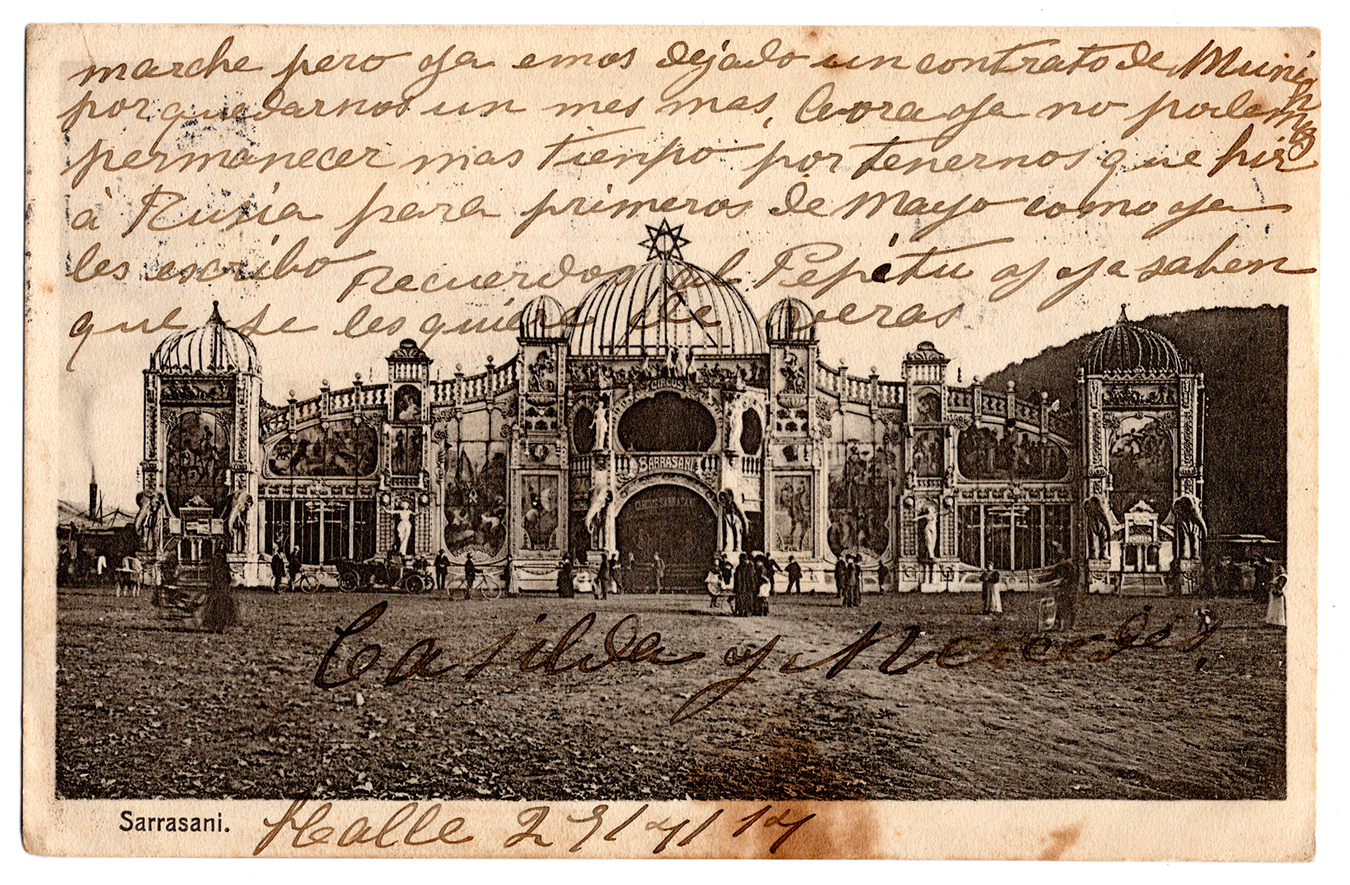 marche pero ya emos dejado un contrato de Munich
por quedarnos un mes mas, haora ya no podemos
permanecer mas tienpo por tenernos que hir
à Rusia para primeros de Mayo como ya
les escribo Recuerdos al Pepitu y ya saben
que se les quiere de veras
CIRCUS
SARRASANI
Casilda y Mercedes,
Sarrasani. Halle 29/4/14